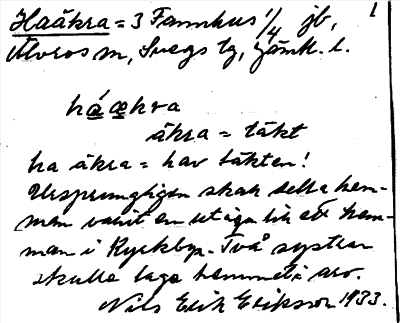 Haåkra = 3 Fannhus 1/4 jb, 1
Älvros sn, Svegs tg, Jämtl. l.
håækra
åkra = täkt
ha åkra = hav täkten!
Ursprungligen skall detta hem-
man varit en utäga till ett hem-
man i Kyrkbyn. Två systrar
skulle taga hemmet i arv.
Nils Erik Eriksson 1933.